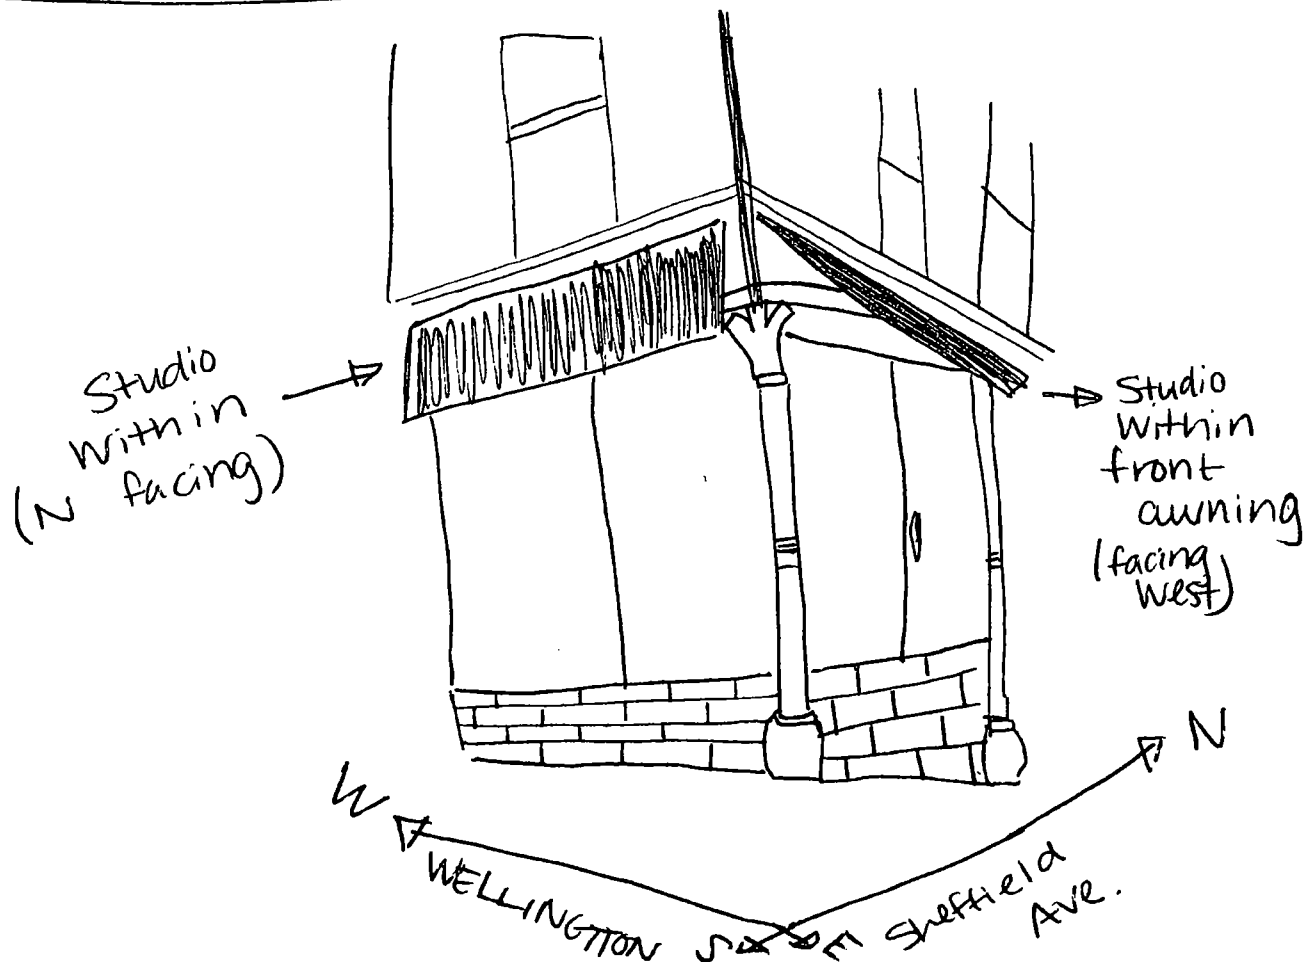 Studio
within
(N facing)
Studio
within
front
awning
(facing
west)
N
W
WELLINGTON
S
E
Sheffield
Ave.